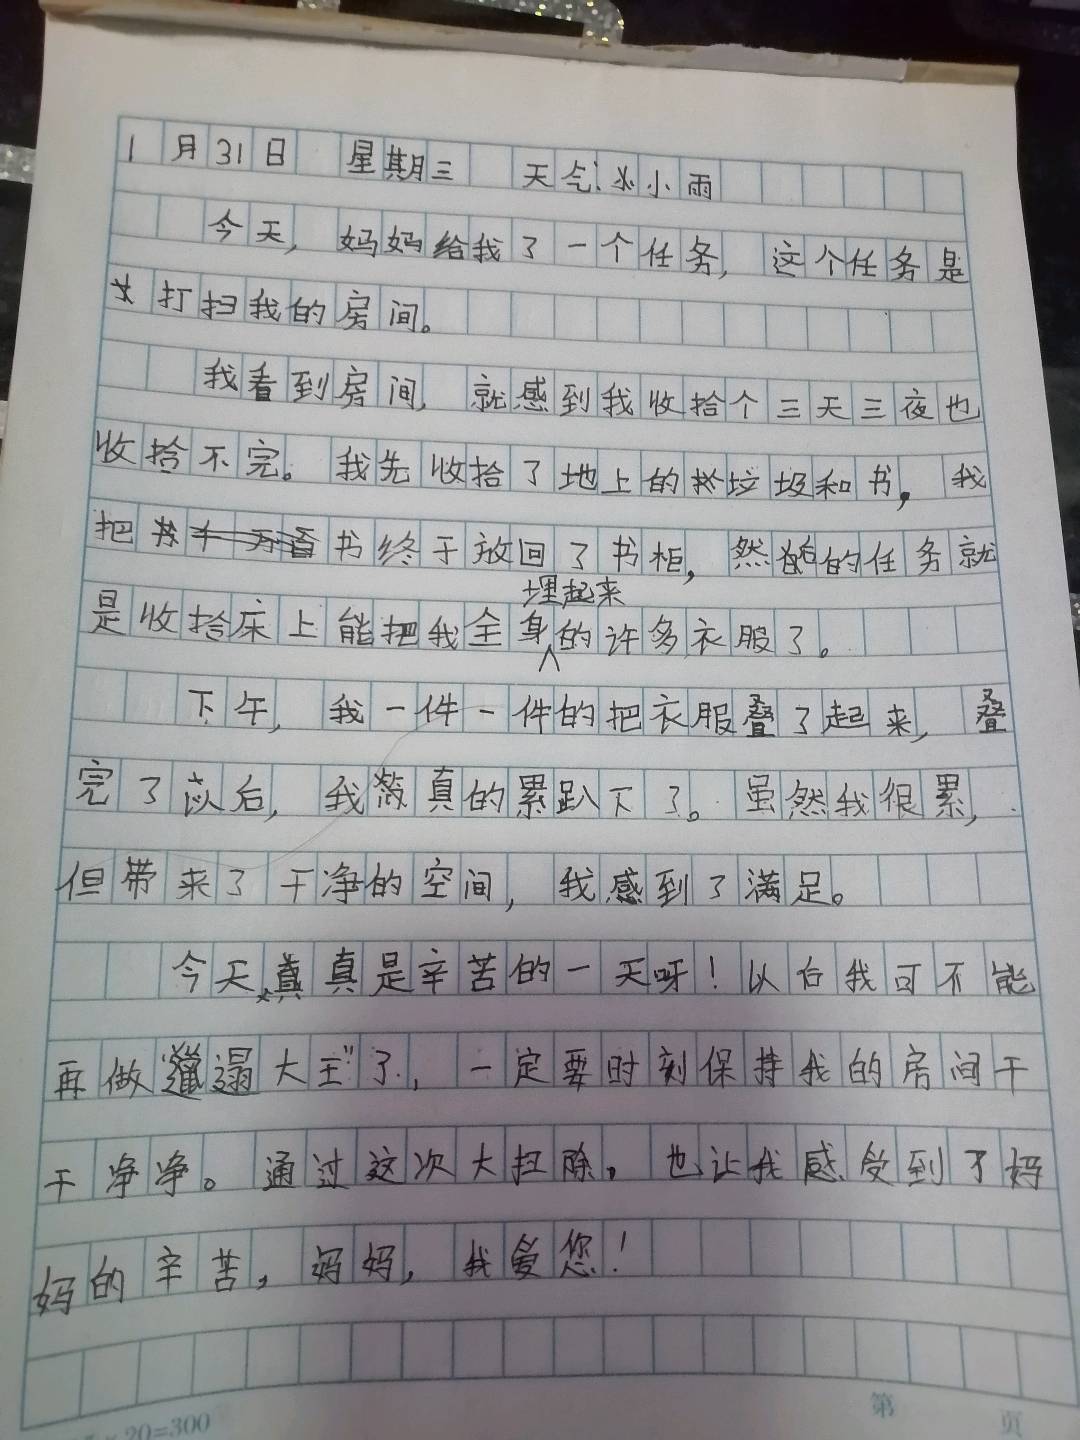 1月31日 星期三 天气:小雨
今天,妈妈给我了一个任务,这个任务是
打扫我的房间。
我看到房间,就感到我收拾个三天三夜也
收拾不完。我先收拾了地上的垃圾和书,我
把书终于放回了书柜,然后的任务就
埋起来
是收拾床上能把我全身的许多衣服了。
下午,我一件一件的把衣服叠了起来,叠
完了以后,我真的累趴下了。虽然我很累,
但带来了干净的空间,我感到了满足。
今天真真是辛苦的一天呀!以后我可不能
再做“邋遢大王”了,一定要时刻保持我的房间干
干净净。通过这次大扫除,也让我感受到了妈
妈的辛苦,妈妈,我爱您!
×20=300
第 页